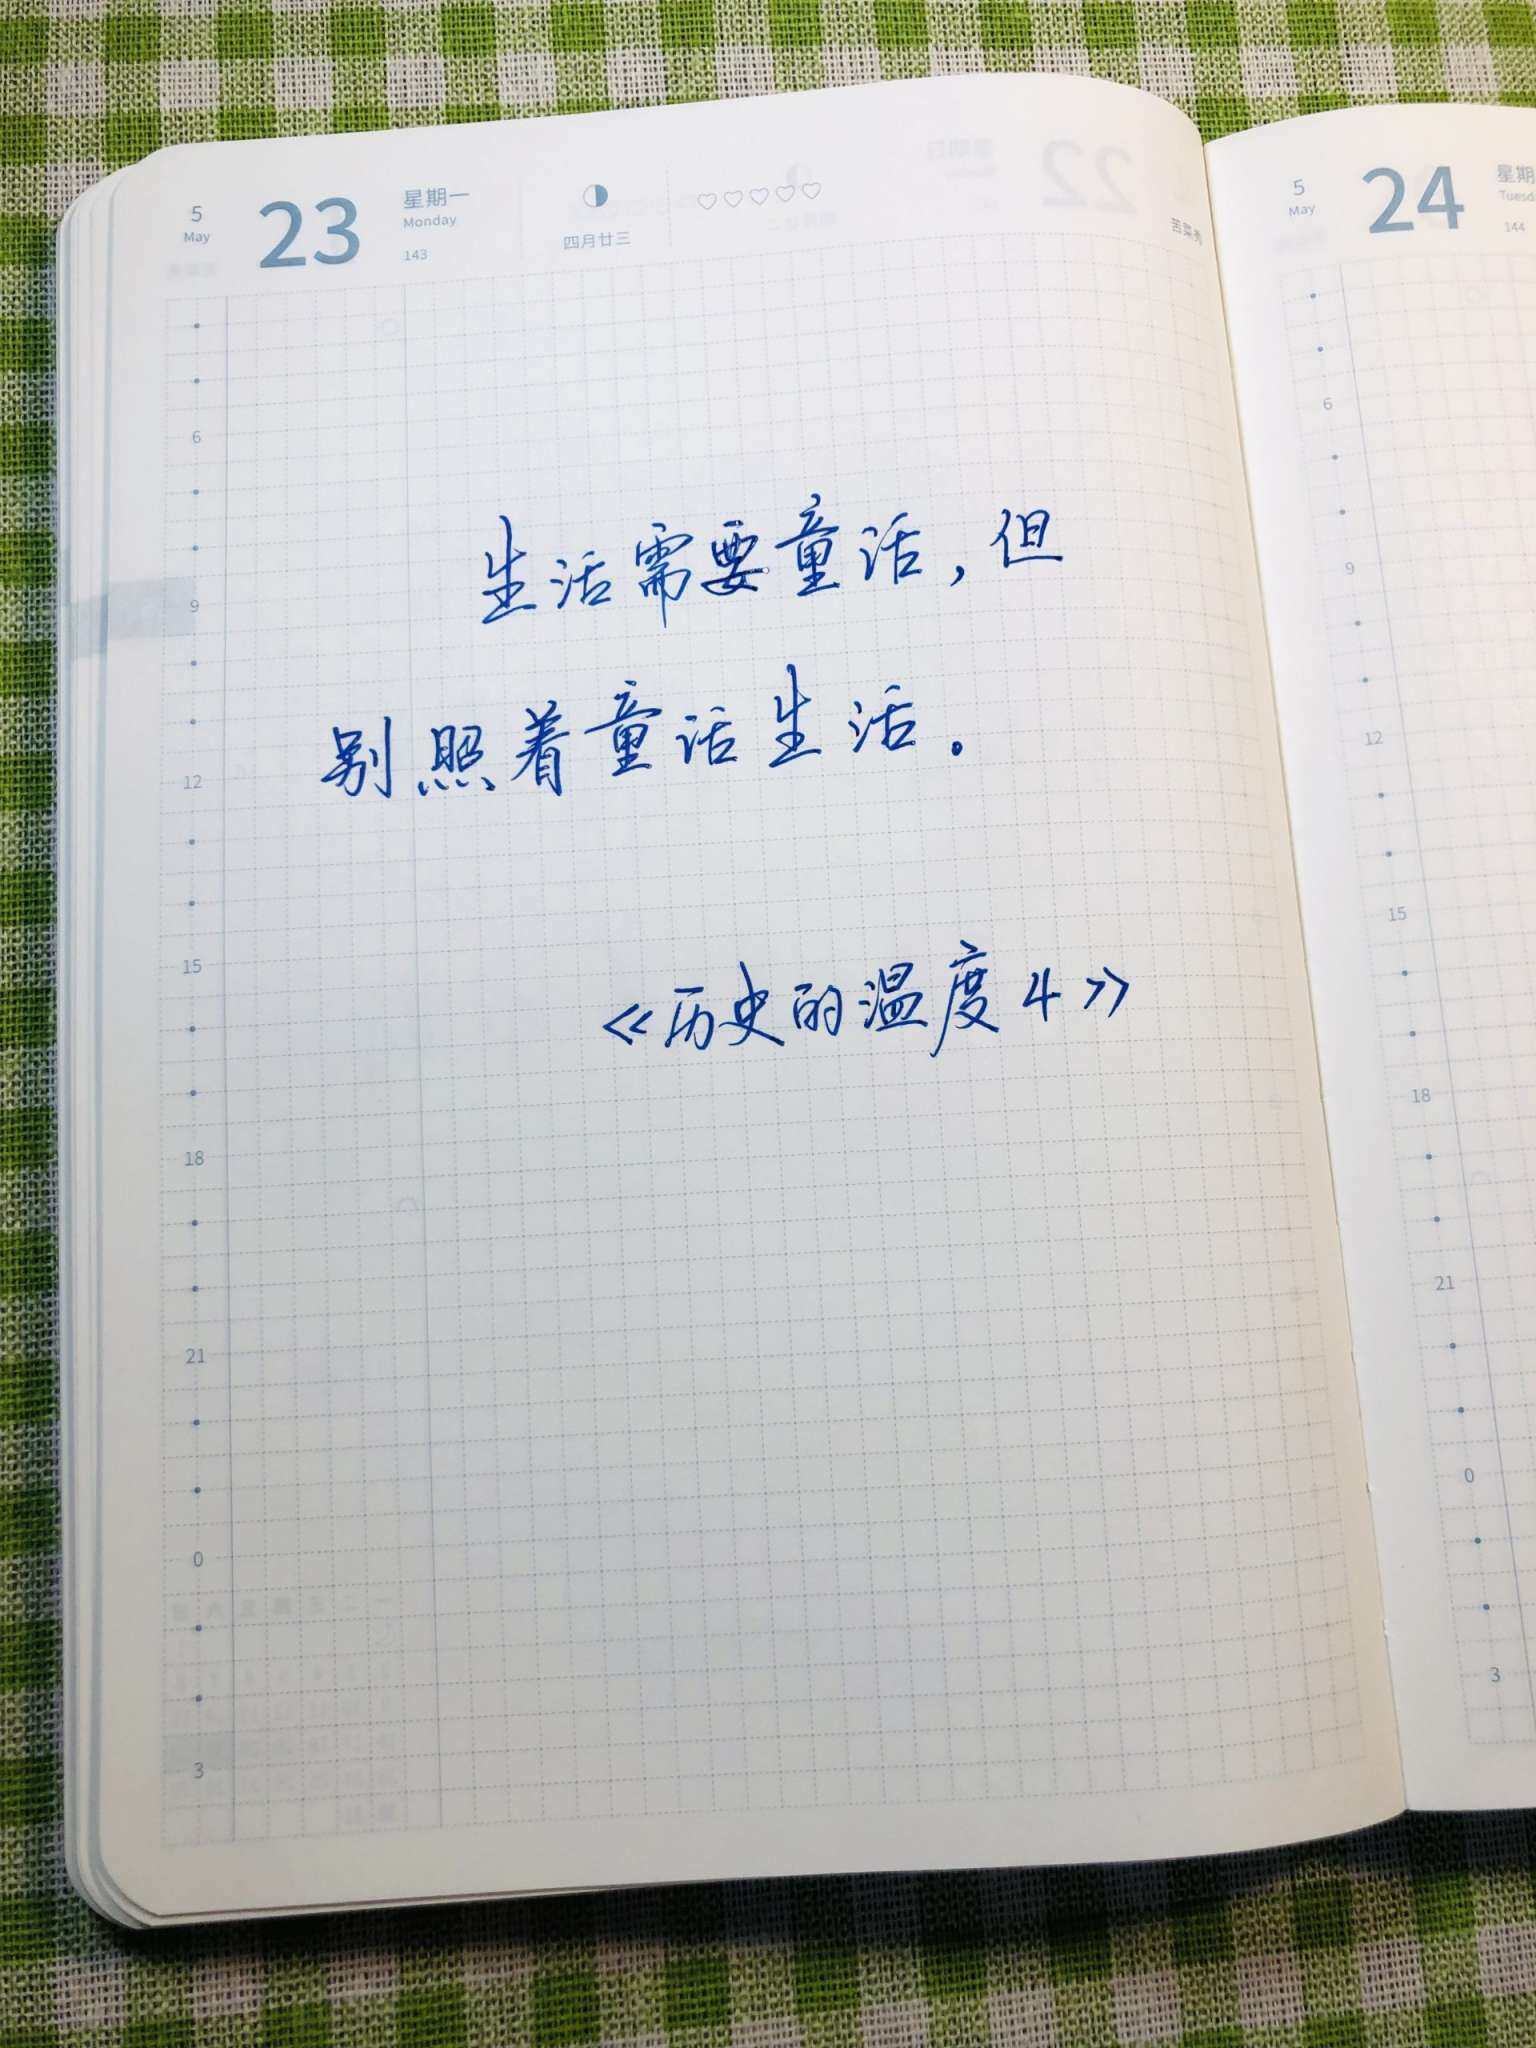 5
May
23
星期一
Monday
143
四月廿三
苦菜秀
6
9
12
15
18
21
0
3
生活需要童话，但
别照着童话生活。
《历史的温度4》
5
May
24
星期
144
6
9
12
15
18
21
0
3